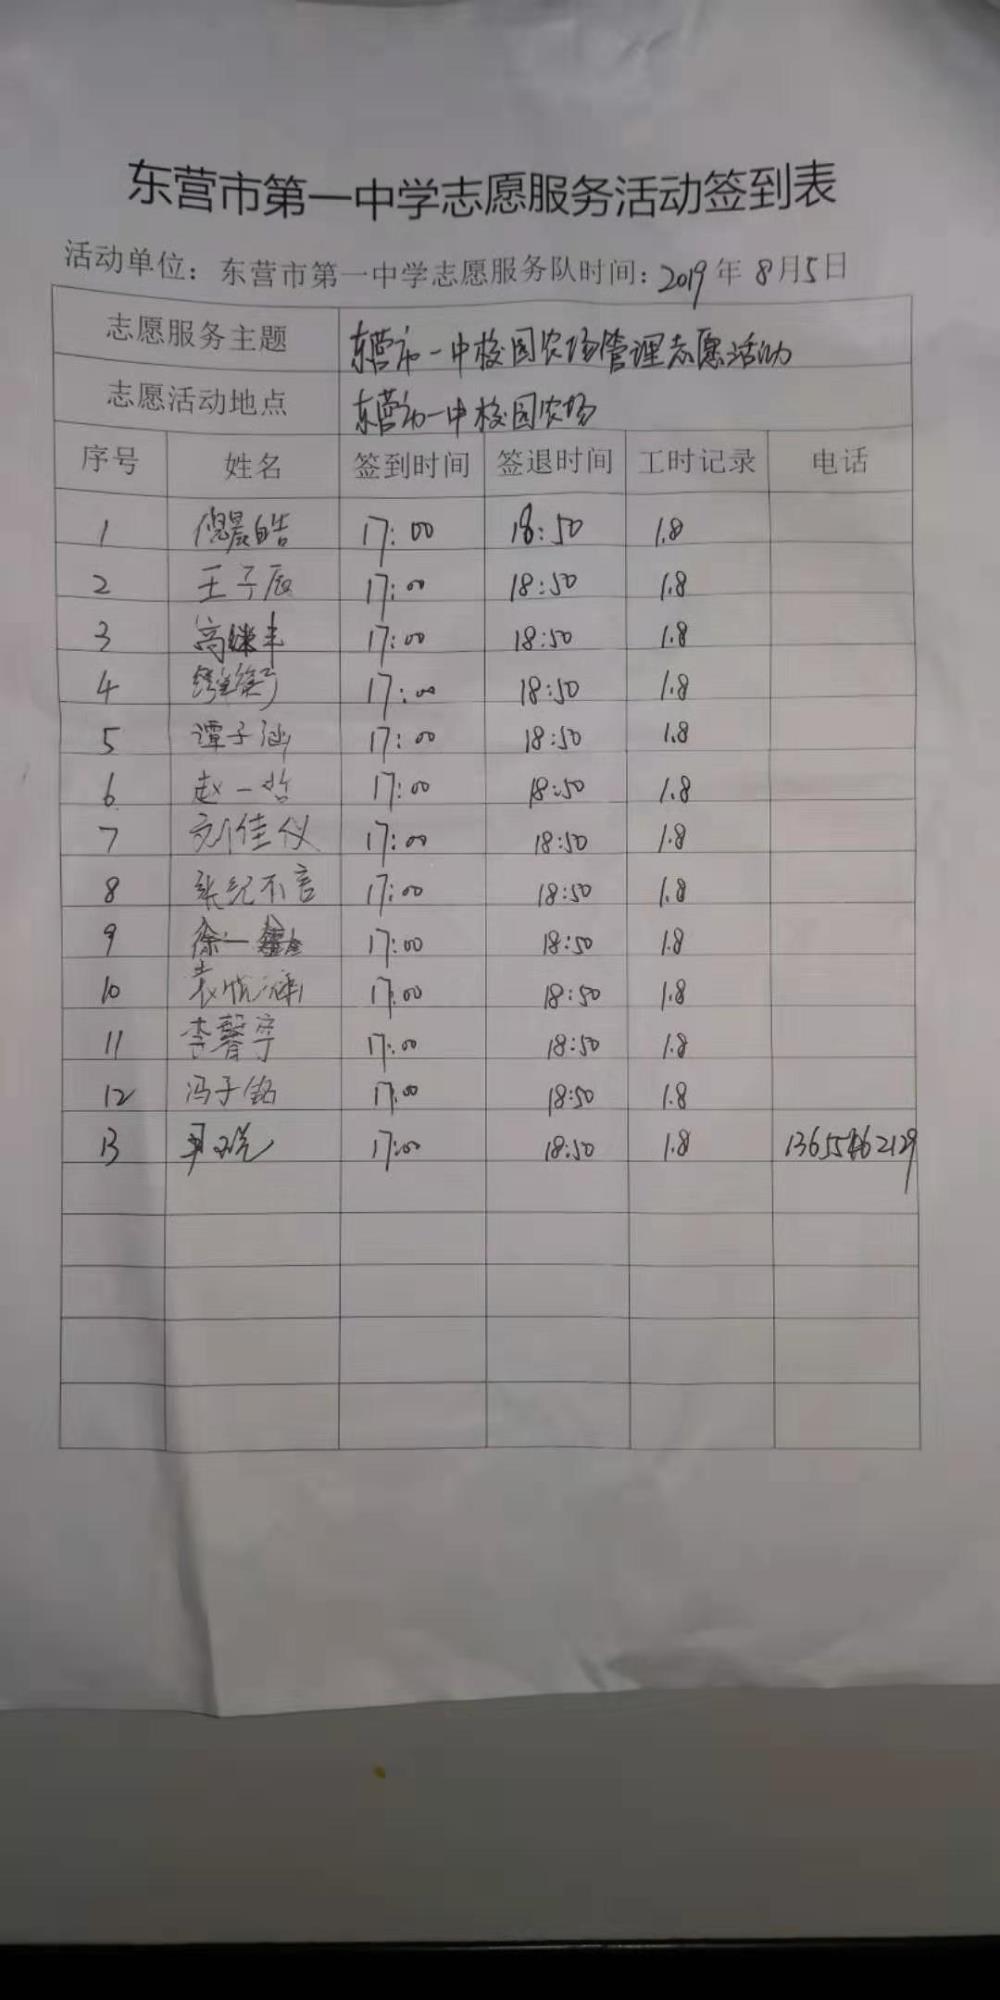 东营市第一中学志愿服务活动签到表
活动单位：东营市第一中学志愿服务队时间：2019年8月5日
志愿服务主题 东营市一中校园农场管理志愿活动
志愿活动地点 东营市一中校园农场
序号 姓名 签到时间 签退时间 工时记录 电话
1 倪晨皓 17:00 18:50 1.8
2 王子辰 17:00 18:50 1.8
3 高继丰 17:00 18:50 1.8
4 17:00 18:50 1.8
5 谭子涵 17:00 18:50 1.8
6 赵一哲 17:00 18:50 1.8
7 刘佳仪 17:00 18:50 1.8
8 张纪不言 17:00 18:50 1.8
9 徐一 17:00 18:50 1.8
10 袁悦 17:00 18:50 1.8
11 李馨宇 17:00 18:50 1.8
12 冯子铭 17:00 18:50 1.8
13 17:00 18:50 1.8